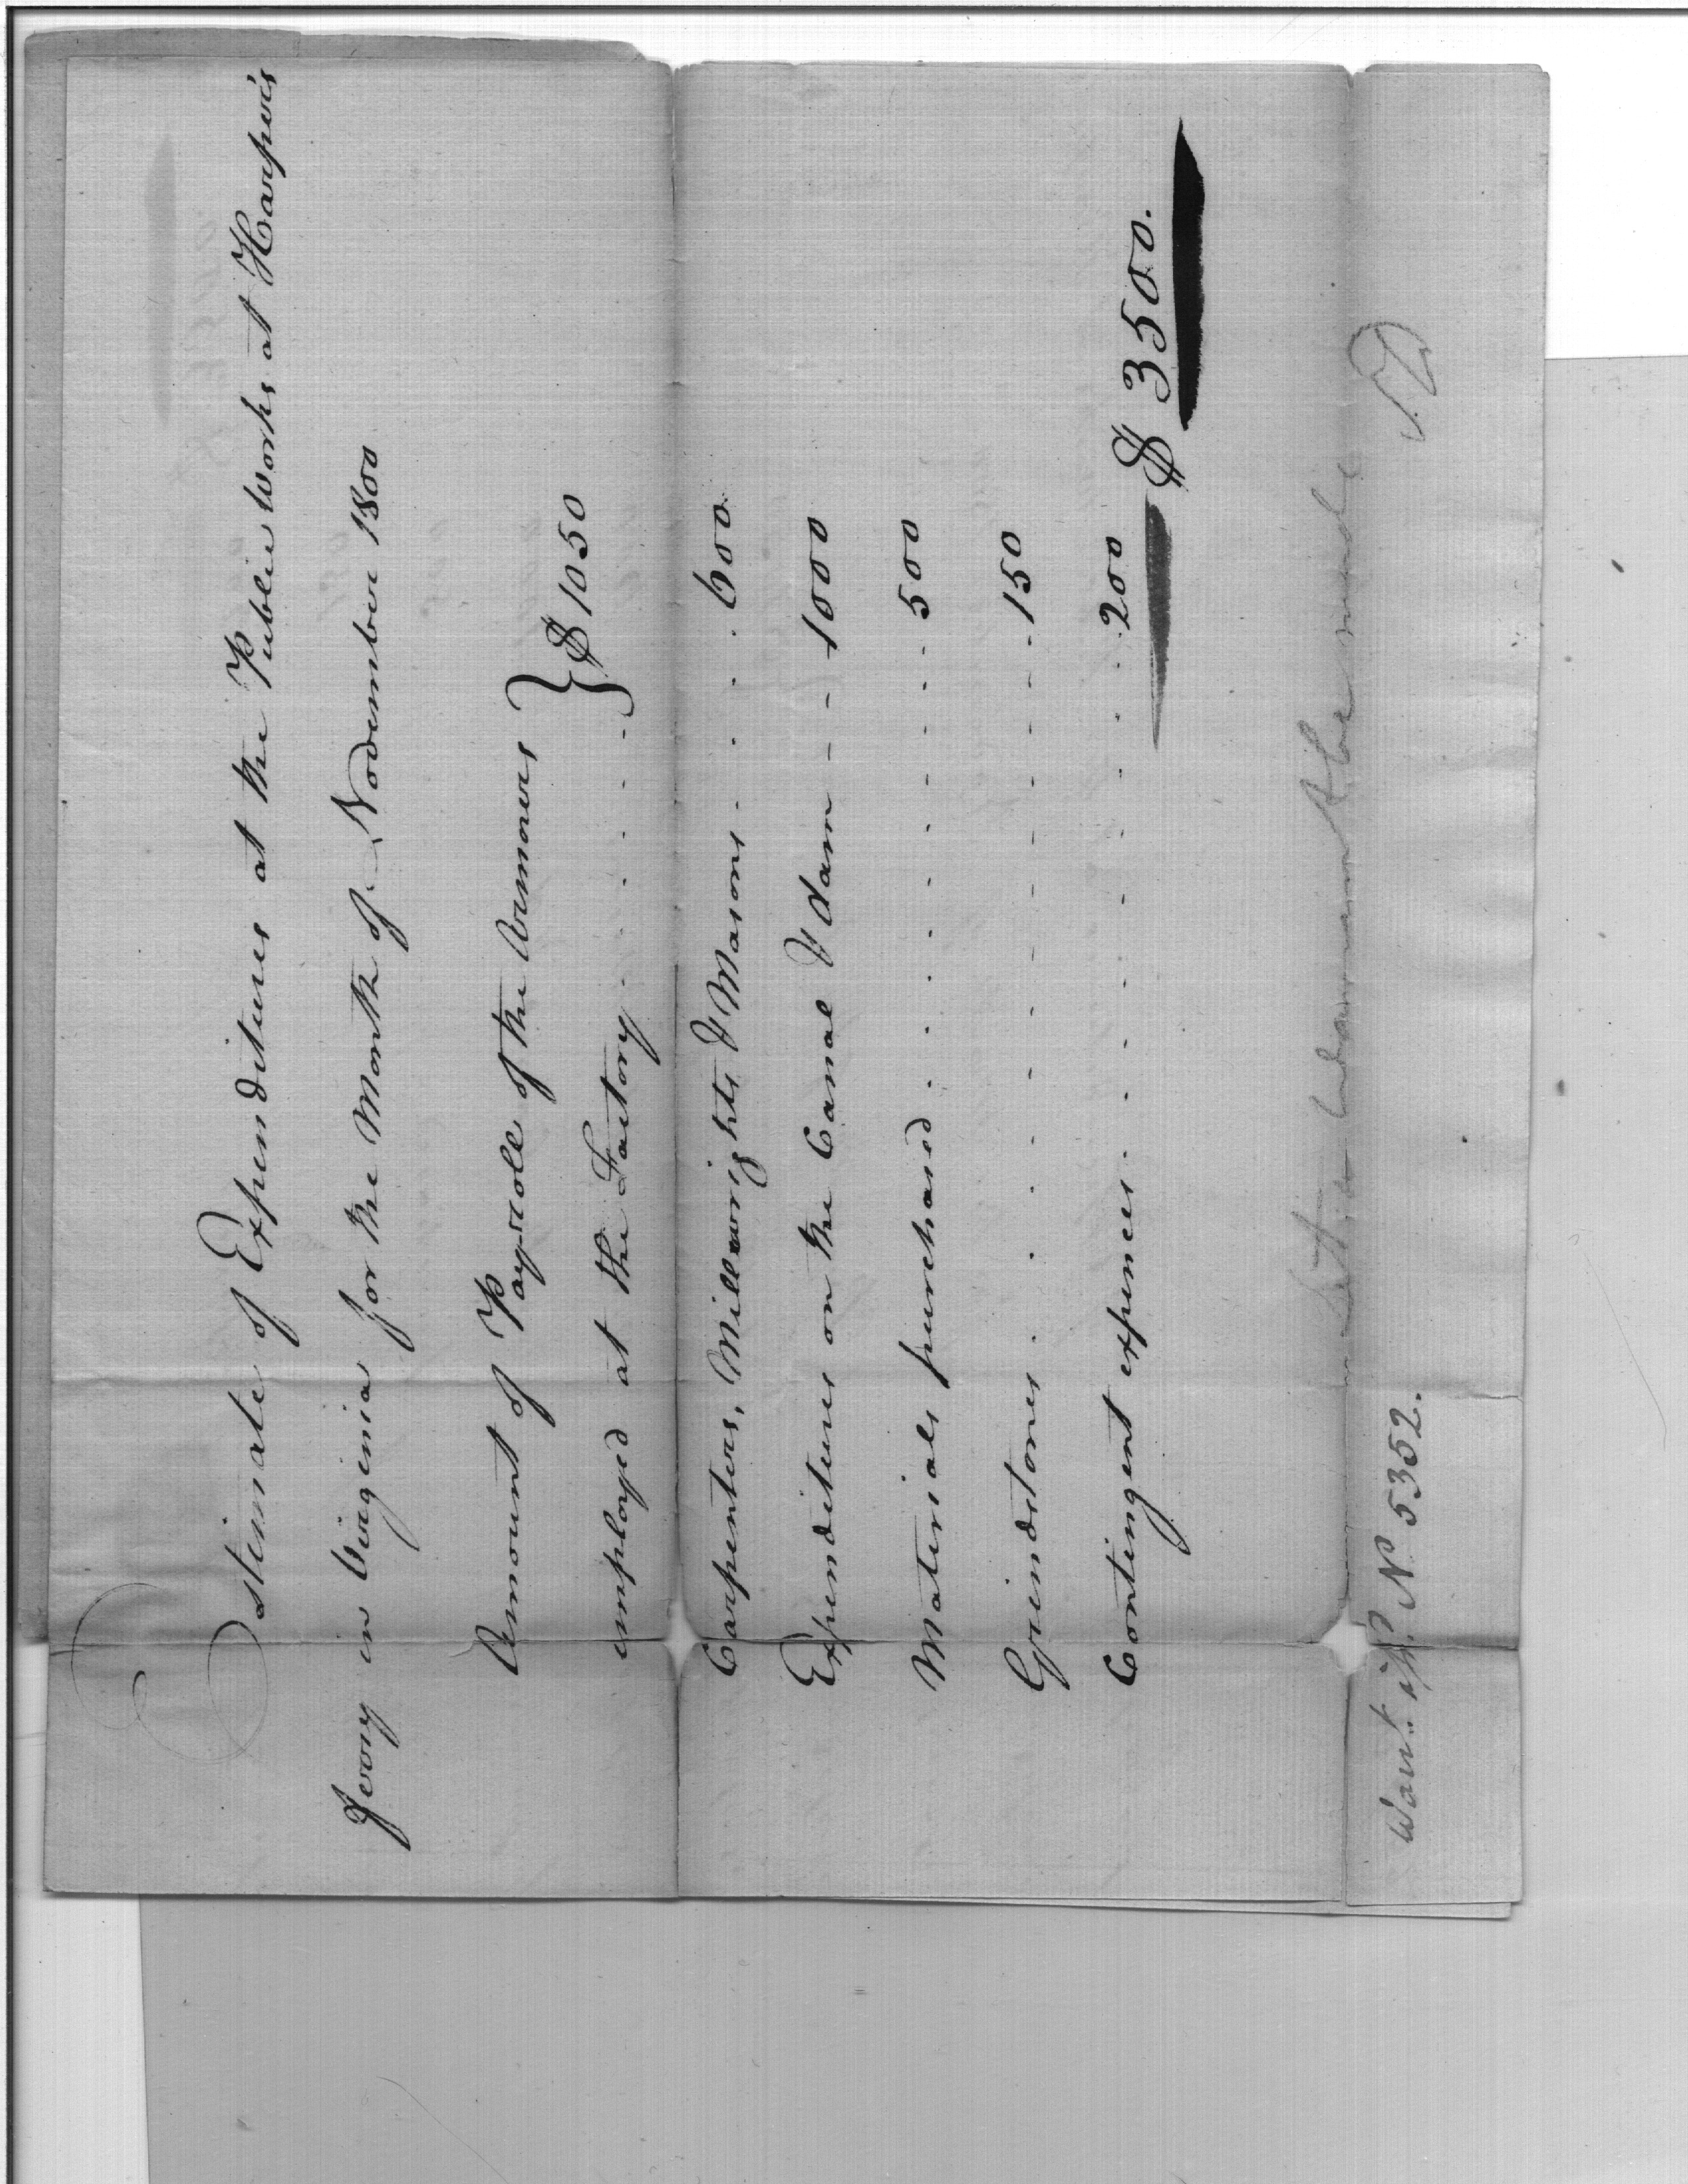 Estimate of Expenditures at the Public Works at Harper's
ferry in Virginia for the Month of November 1800
Amount of Payrole of the Armorers } $ 1050
employed at the Factory . . . . .
Carpenters, Millwrights & Masons . . . . 600
Expenditures on the Canal & Dam - - - 1000
Materials purchased . . . . . . . 500
Grindstones . . . . . . . . 150
Contingent expences . . . . . . . 200
$ 3500.
Let a warrant be made
S. D
Warrt. iss. No. 5352.